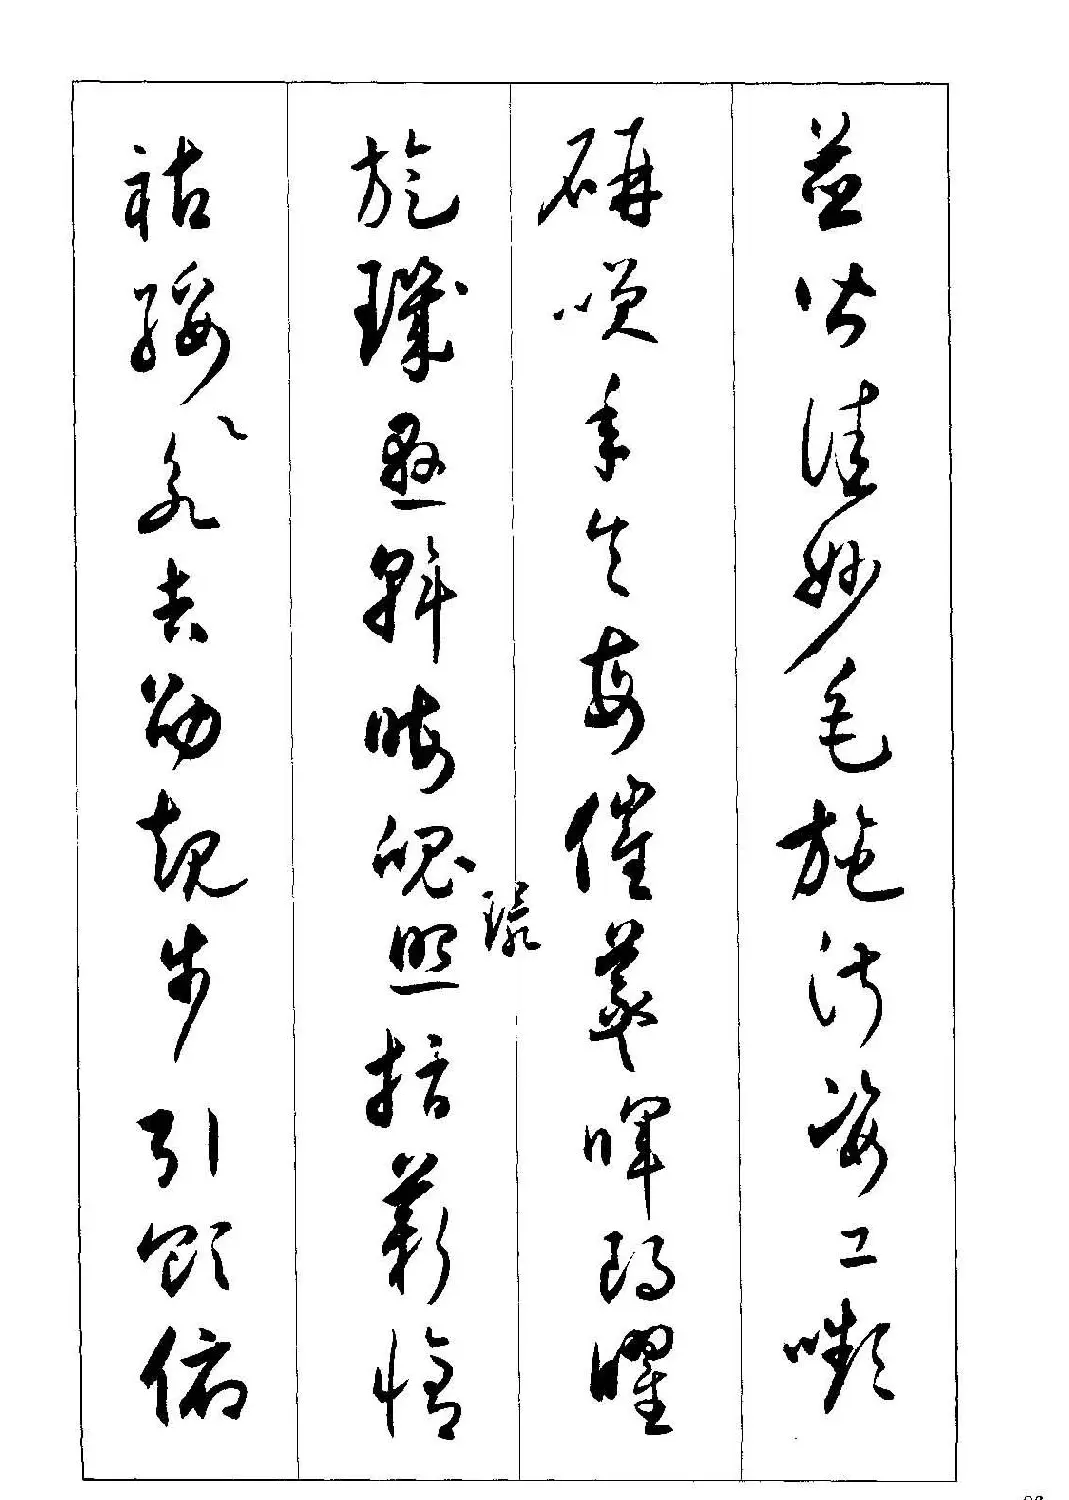 並皆佳妙毛施淑姿工嚬
研咲年矢每催羲暉朗曜
旋璣懸斡晦魄環照指薪脩
祜綏永吉劭規步引領俯